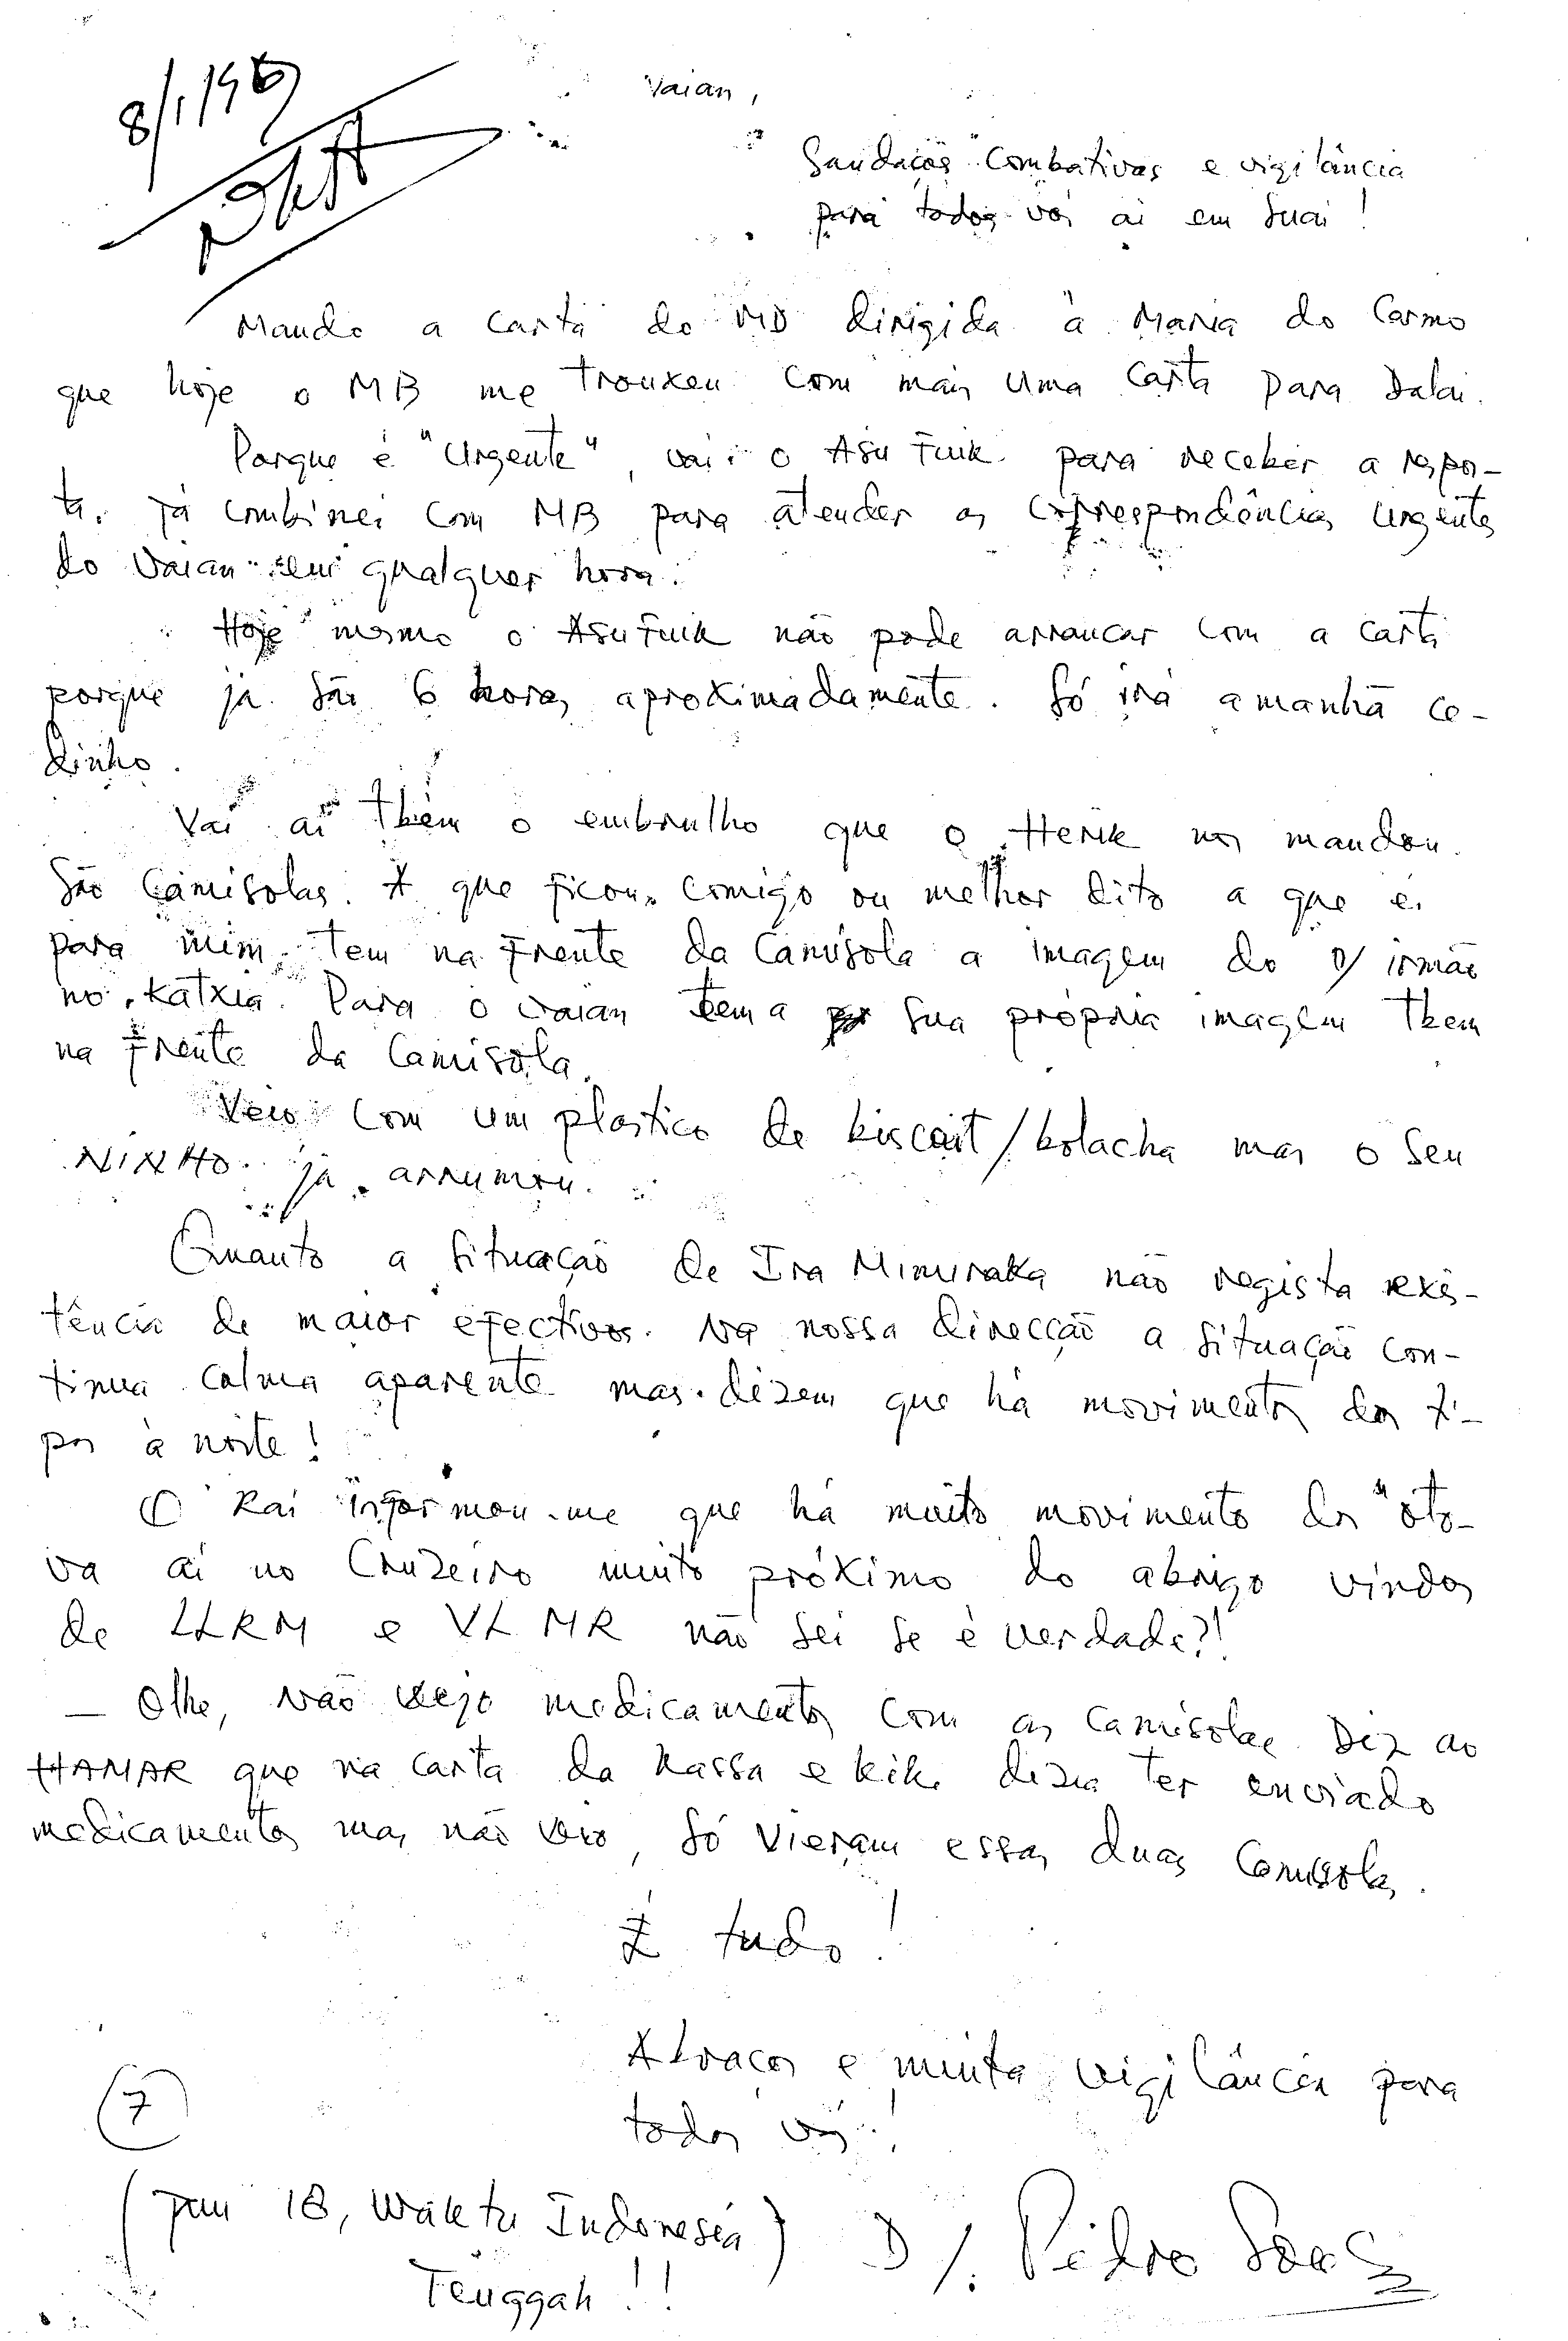 8/1/96
Vaian,
Saudações Combativas e vigilância
para todos vós aí em Suai!
Mando a carta do MD dirigida à Maria do Carmo
que hoje o MB me trouxeu com mais uma carta para Dalai.
Porque é "urgente", vai o Asu Fuik para receber a respos-
ta. Já combinei com MB para atender as correspondências urgentes
do Vaian em qualquer hora.
Hoje mesmo o Asu Fuik não pode arrancar com a carta
porque já são 6 horas aproximadamente. Só irá amanhã ce-
dinho.
Vai aí tbém o embrulho que o Herik nos mandou.
São Camisolas. A que ficou comigo ou melhor dito a que é
para mim, tem na frente da Camisola a imagem do o/ irmão
no Katxia. Para o Vaian tem a sua própria imagem tbem
na frente da Camisola.
Veio com um plastico de biscoit/bolacha mas o seu
NINHO já arrumou.
Quanto a Situação de Ira Mimiraka não regista exis-
tência de maior efectivos. Na nossa direcção a situação con-
tinua calma aparente mas dizem que há movimentos dos ti-
pos à noite!
O Rai informou-me que há muito movimento dos "oto-
va aí no Cruzeiro muito próximo do abrigo vindos
de LLRM e VLMR não sei se é verdade?!
— Olhe, não vejo medicamentos com as camisolas. Diz ao
HAMAR que na carta da Kassa e Kiki dizia ter enviado
medicamentos mas não veio, só vieram essas duas Camisolas.
É tudo!
Abraços e muita vigilância para
todos vós!
7
(Jam 18, Waktu Indonesia) D/. Pedro
Tenggah!!